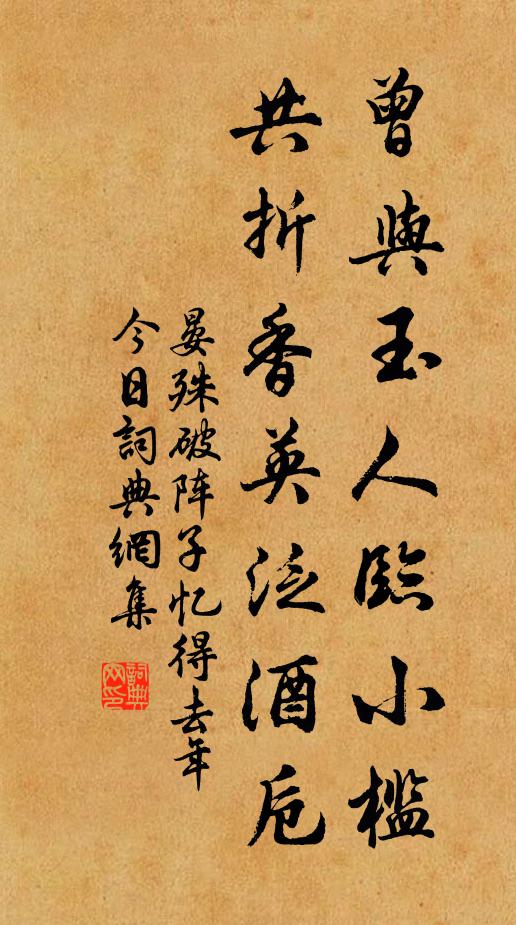 曾與玉人臨小檻
共折香英泛酒卮
晏殊破阵子忆得去年
今日詞典網集
詞典网印